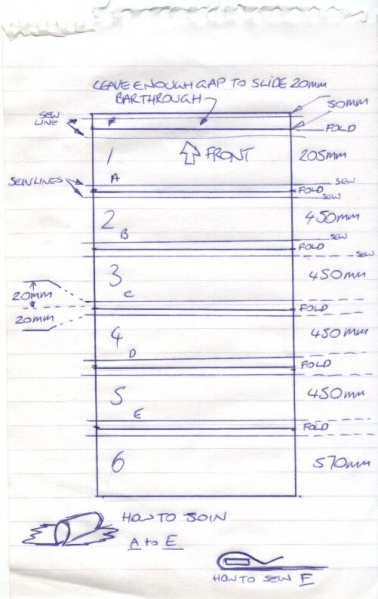 LEAVE ENOUGH GAP TO SLIDE 20mm
BAR THROUGH
50mm
SEW
LINE
F
FOLD
1
FRONT
205mm
A
SEW
SEW LINES
FOLD
SEW
2
450mm
B
SEW
FOLD
3
450mm
20mm
C
FOLD
20mm
4
450mm
D
FOLD
5
450mm
E
FOLD
6
570mm
HOW TO JOIN
A to E
HOW TO SEW F